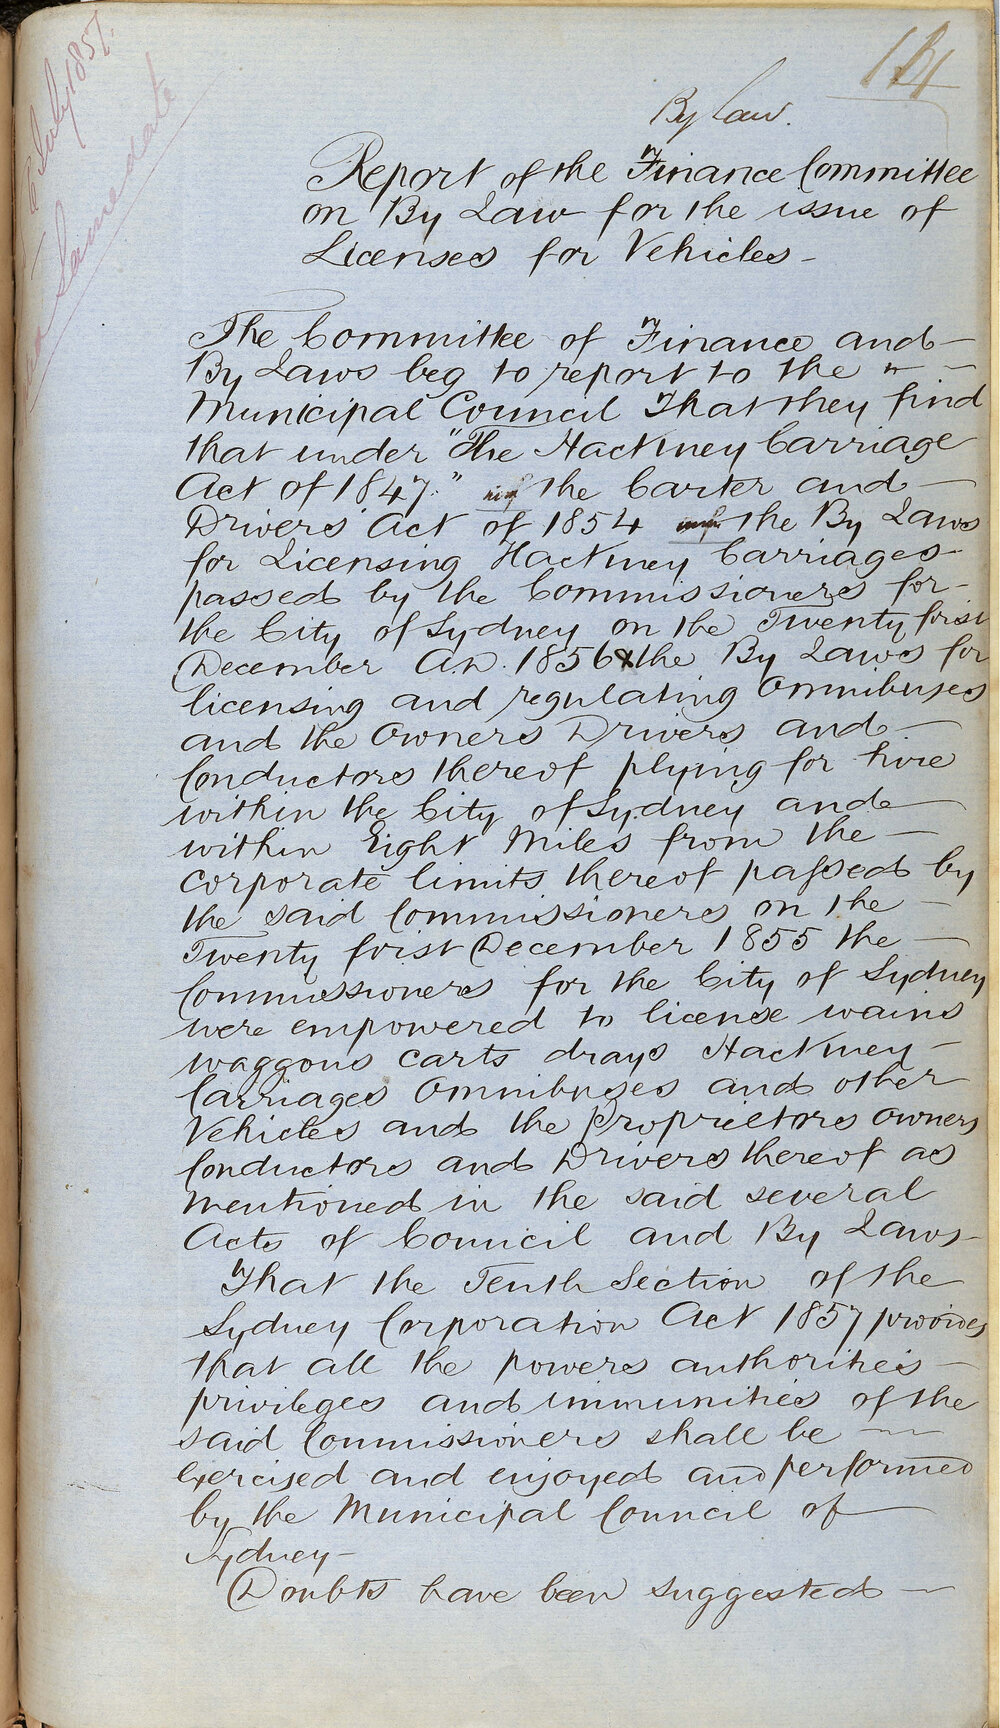 6 July 1857.
Same date
By Law.
Report of the Finance Committee
on By Law for the issue of
Licenses for Vehicles -
The Committee of Finance and
By Laws beg to report to the
Municipal Council That they find
that under "The Hackney Carriage
Act of 1847." the Carter and
Drivers' Act of 1854 the By Laws
for Licensing Hackney Carriages
passed by the Commissioners for
the City of Sydney on the Twenty first
December A.D. 1856 & the By Laws for
licensing and regulating Omnibuses
and the Owners Drivers and
Conductors thereof plying for hire
within the City of Sydney and
within Eight Miles from the
corporate limits thereof passed by
the said Commissioners on the
Twenty first December 1855 the
Commissioners for the City of Sydney
were empowered to license wains
waggons carts drays Hackney
Carriages Omnibuses and other
Vehicles and the Proprietors owners
Conductors and Drivers thereof as
mentioned in the said several
Acts of Council and By Laws
That the Tenth Section of the
Sydney Corporation Act 1857 provides
that all the powers authorities
privileges and immunities of the
said Commissioners shall be
exercised and enjoyed and performed
by the Municipal Council of
Sydney -
Doubts have been suggested